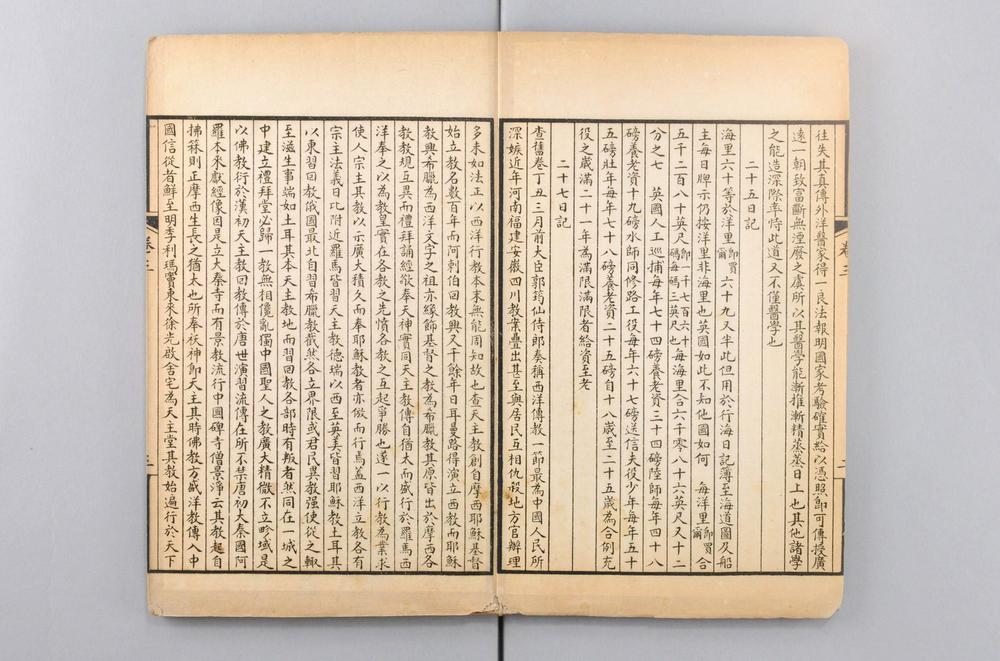 往失其真傳外洋醫家得一良法報明國家考驗確實給以憑照卽可傳授廣
遠一朝致富斷無湮廢之虞所以其醫學能漸推漸精蒸蒸日上也其他諸學
之能造深際率恃此道又不僅醫學也
二十五日記
海里六十等於洋里卽買爾六十九又半此但用於行海日記簿至海道圖及船
主每日牌示仍按洋里非海里也英國如此不知他國如何 每洋里卽買爾合
五千二百八十英尺卽一千七百六十碼每碼三英尺也每海里合六千零八十六英尺又十二
分之七 英國人工巡捕每年七十四磅養老資三十四磅陸師每年四十八
磅養老資十九磅水師同修路工役每年六十七磅送信夫役少年每年五十
五磅壯年每年七十八磅養老資二十五磅自十八歲至二十五歲為合例充
役之歲滿二十一年為滿限滿限者給資至老
二十七日記
查舊卷丁丑三月前大臣郭筠仙侍郎奏稱西洋傳教一節最為中國人民所
深嫉近年河南福建安徽四川教案疊出甚至與居民互相仇殺地方官辦理
多未如法正以西洋行教本末無能周知故也查天主教創自摩西耶穌基督
始立教名數百年而阿剌伯回教興又千餘年日耳曼路得演立西教而耶穌
教興希臘為西洋文字之祖亦緣飾基督之教為希臘教其原皆出於摩西各
教教規互異而禮拜誦經敬奉天神實同天主教傳自猶太而盛行於羅馬西
洋奉之以為教皇實在各教之先憤各教之互起爭勝也遂一以行教為業求
使人宗主其教以示廣大積久而奉耶穌教者亦倣而行焉蓋西洋立教各有
宗主法義日比附近羅馬皆習天主教德瑞以西至英美皆習耶穌教土耳其
以東習回教俄國最北自習希臘教截然各立界限或君民異教强使從之輒
至滋生事端如土耳其本天主教地而習回教各部時有叛者然同在一城之
中建立禮拜堂必歸一教無相儳亂獨中國聖人之教廣大精微不立畛域是
以佛教行於漢初天主教回教傳於唐世演習流傳在所不禁唐初大秦國阿
羅本來獻經像因是立大秦寺而有景教流行中國碑寺僧景淨云其教起自
拂菻則正摩西生長之猶太也所奉祆神卽天主其時佛教方盛洋教傳入中
國信從者鮮至明季利瑪竇東來徐光啟舍宅為天主堂其教始遍行於天下
卷三
二
卷三
三